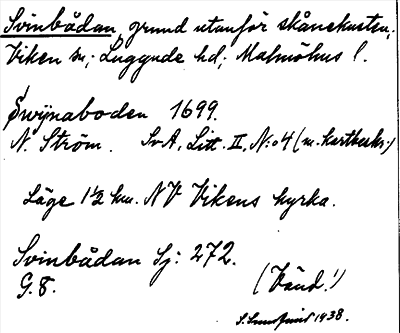 Svinbådan, grund utanför skånekusten,
Viken sn; Luggude hd; Malmöhus l.
Swijnaboden 1699.
N. Ström. SvA, Litt. II, N:o 4 (m. kartbeskr.)
Läge 1 1/2 km. NV Vikens kyrka.
Svinbådan Sj: 272.
G. 8. (Vänd!)
1938.